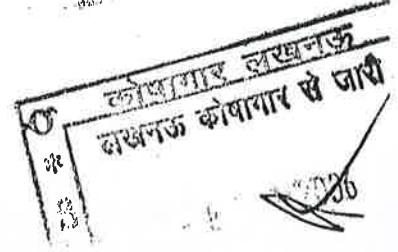 कोषागार लखनऊ
लखनऊ कोषागार से जारी